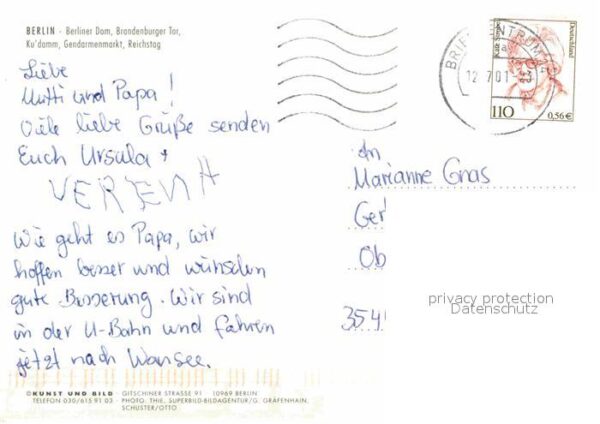 BERLIN - Berliner Dom, Brandenburger Tor,
Ku'damm, Gendarmenmarkt, Reichstag
Liebe
Mutti und Papa!
Viele liebe Grüße senden
Euch Ursula +
VERENA
Wie geht es Papa, wir
hoffen besser und wünschen
gute Besserung. Wir sind
in der U-Bahn und fahren
jetzt nach Wansee.
BRIEFZENTRUM
12.7.01
Käte Strobel
Deutschland
110
0,56 €
An
Marianne Gnas
Ger
Ob
354
privacy protection
Datenschutz
©KUNST UND BILD · GITSCHINER STRASSE 91 · 10969 BERLIN
TELEFON 030/615 91 03 · PHOTO: THIE, SUPERBILD-BILDAGENTUR/G. GRÄFENHAIN,
SCHUSTER/OTTO